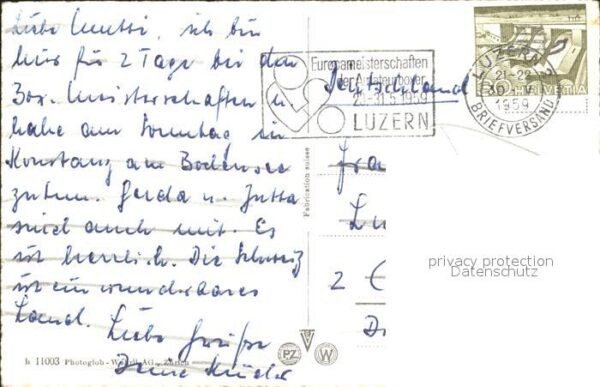 Liebe Mutti, ich bin
hier für 2 Tage bei den
Box-Meisterschaften u.
habe am Sonntag in
Konstanz am Bodensee
zu tun. Gerda u. Jutta
sind auch mit. Es
ist herrlich. Die Schweiz
ist ein wunderbares
Land. Liebe Grüße
Deine
h 11003 Photoglob-Wehrli AG., Zürich
Fabrication suisse
PZ
W
Europameisterschaften
der Amateurboxer
31.5.1959
LUZERN
Deutschland
LUZERN
21-22
1959
BRIEFVERSAND
HELVETIA
Fra
Lu
2
D
privacy protection
Datenschutz